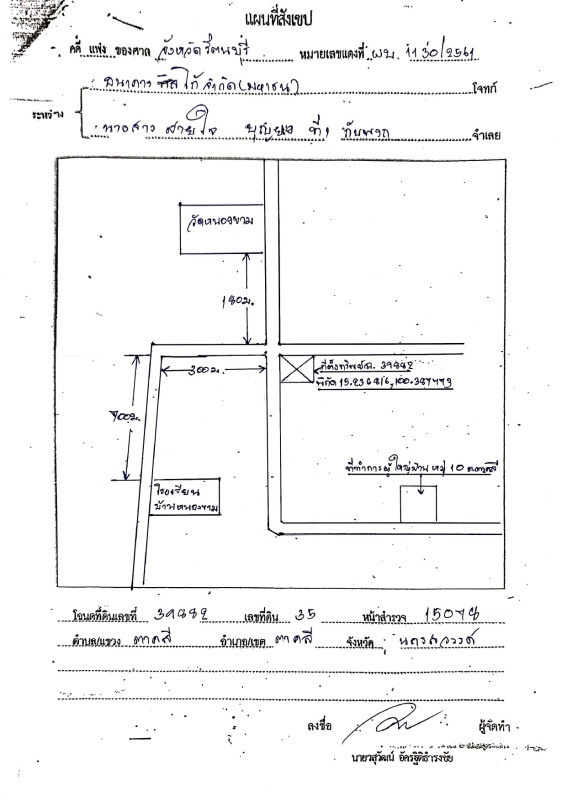 แผนที่สังเขป
คดี แพ่ง ของศาล จังหวัดรัตนบุรี หมายเลขแดงที่ ผบ. 1130/2561
ธนาคาร ทิสโก้ จำกัด (มหาชน) โจทก์
ระหว่าง
นางสาว สายใจ บุญยง ที่1 กับพวก จำเลย
วัดหนองขาม
180ม.
300ม.
ที่ตั้งทรัพย์
พิกัด
700ม.
ที่ทำการผู้ใหญ่บ้าน หมู่ 10 ต.ตาคลี
โรงเรียน
บ้านหนองขาม
โฉนดที่ดินเลขที่ 39882 เลขที่ดิน 35 หน้าสำรวจ
ตำบล/แขวง ตาคลี อำเภอ/เขต ตาคลี จังหวัด นครสวรรค์
ลงชื่อ ผู้จัดทำ
นายวสุวัฒน์ อัครฐิติธำรงชัย